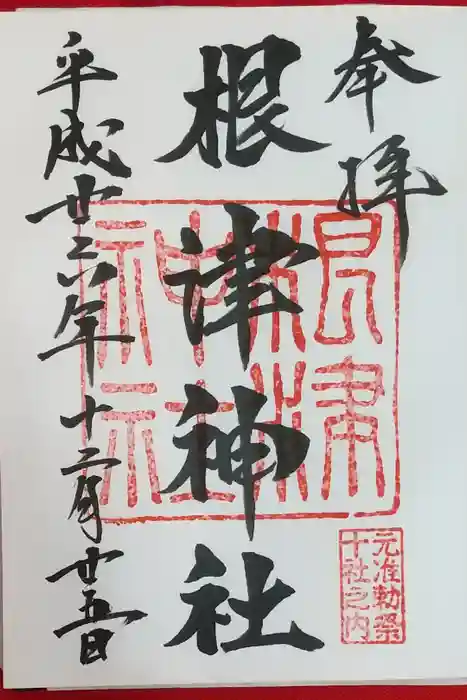 奉拝
根津神社
平成廿六年十二月廿五日
根津
神社
元准勅祭
十社之内